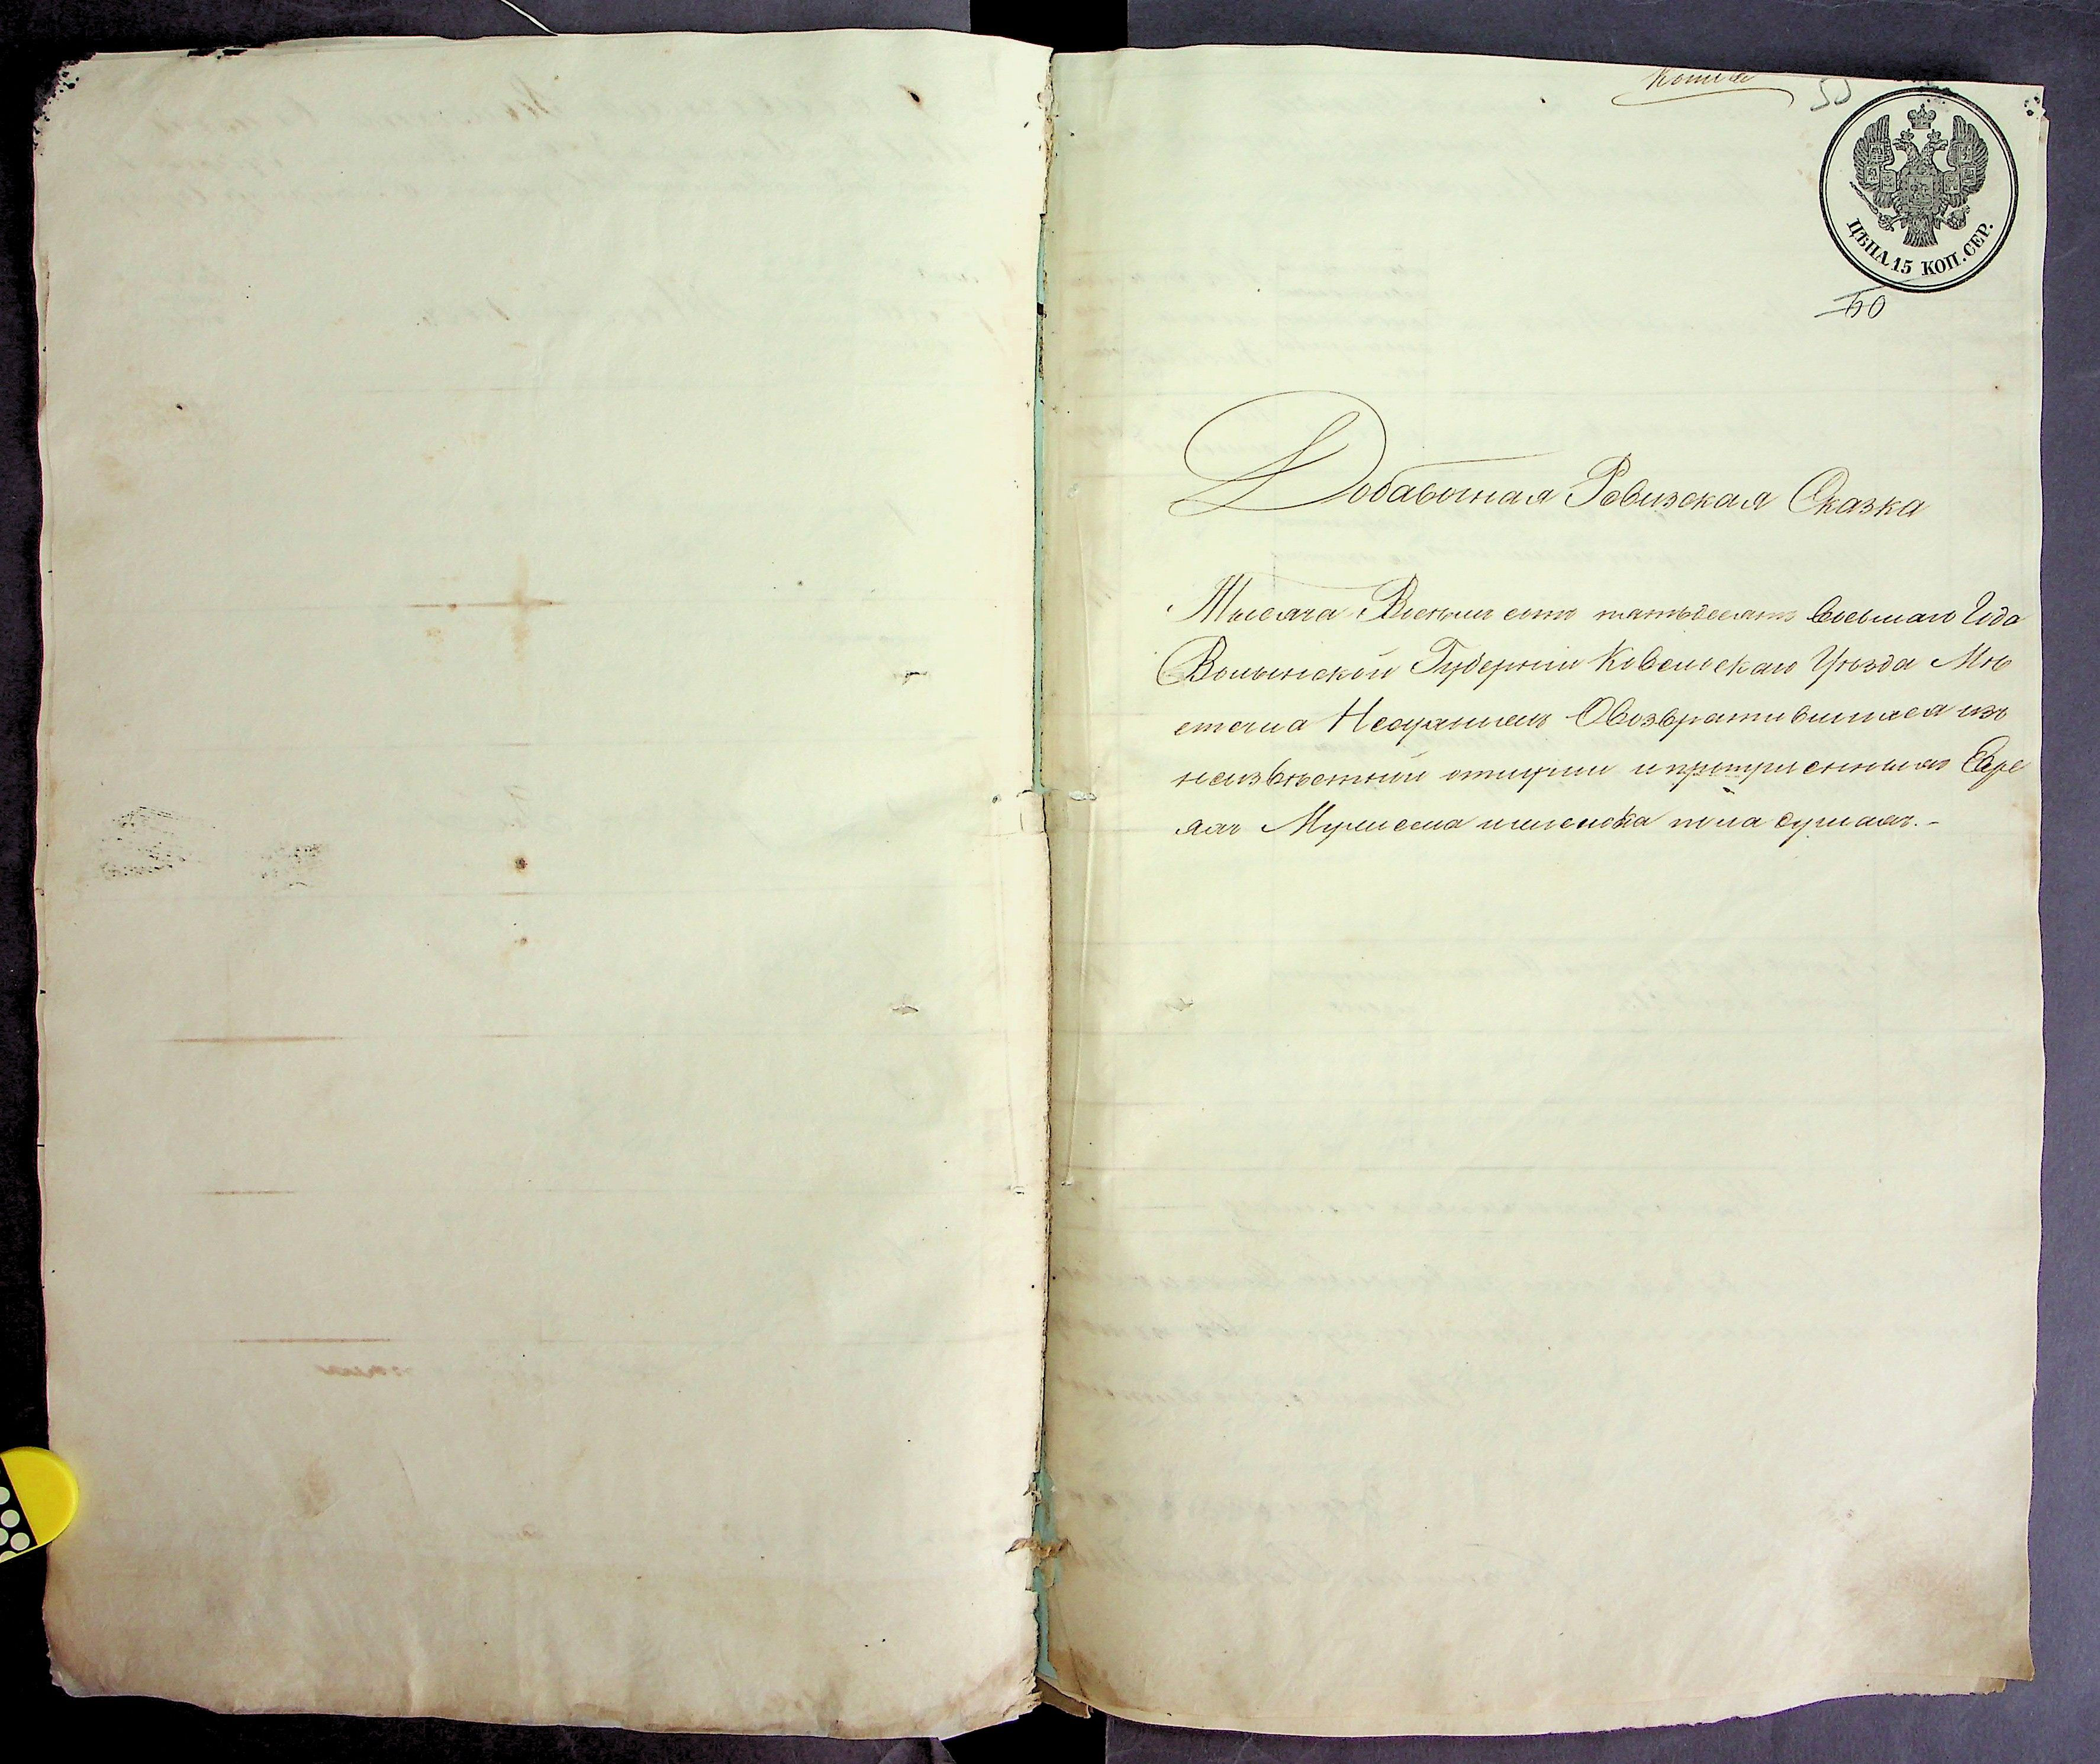 Копия
55
ЦѢНА 15 КОП. СЕР.
50
Добавочная Ревизская Сказка
Тысяча Восемь сотъ пятьдесятъ Восьмаго Года
Волынской Губерніи Ковельскаго Уѣзда Мѣ
стечка Несухоижъ О возвратившихся изъ
неизвѣстной отлучки и Евре
яхъ Мужеска и женска пола душахъ.-